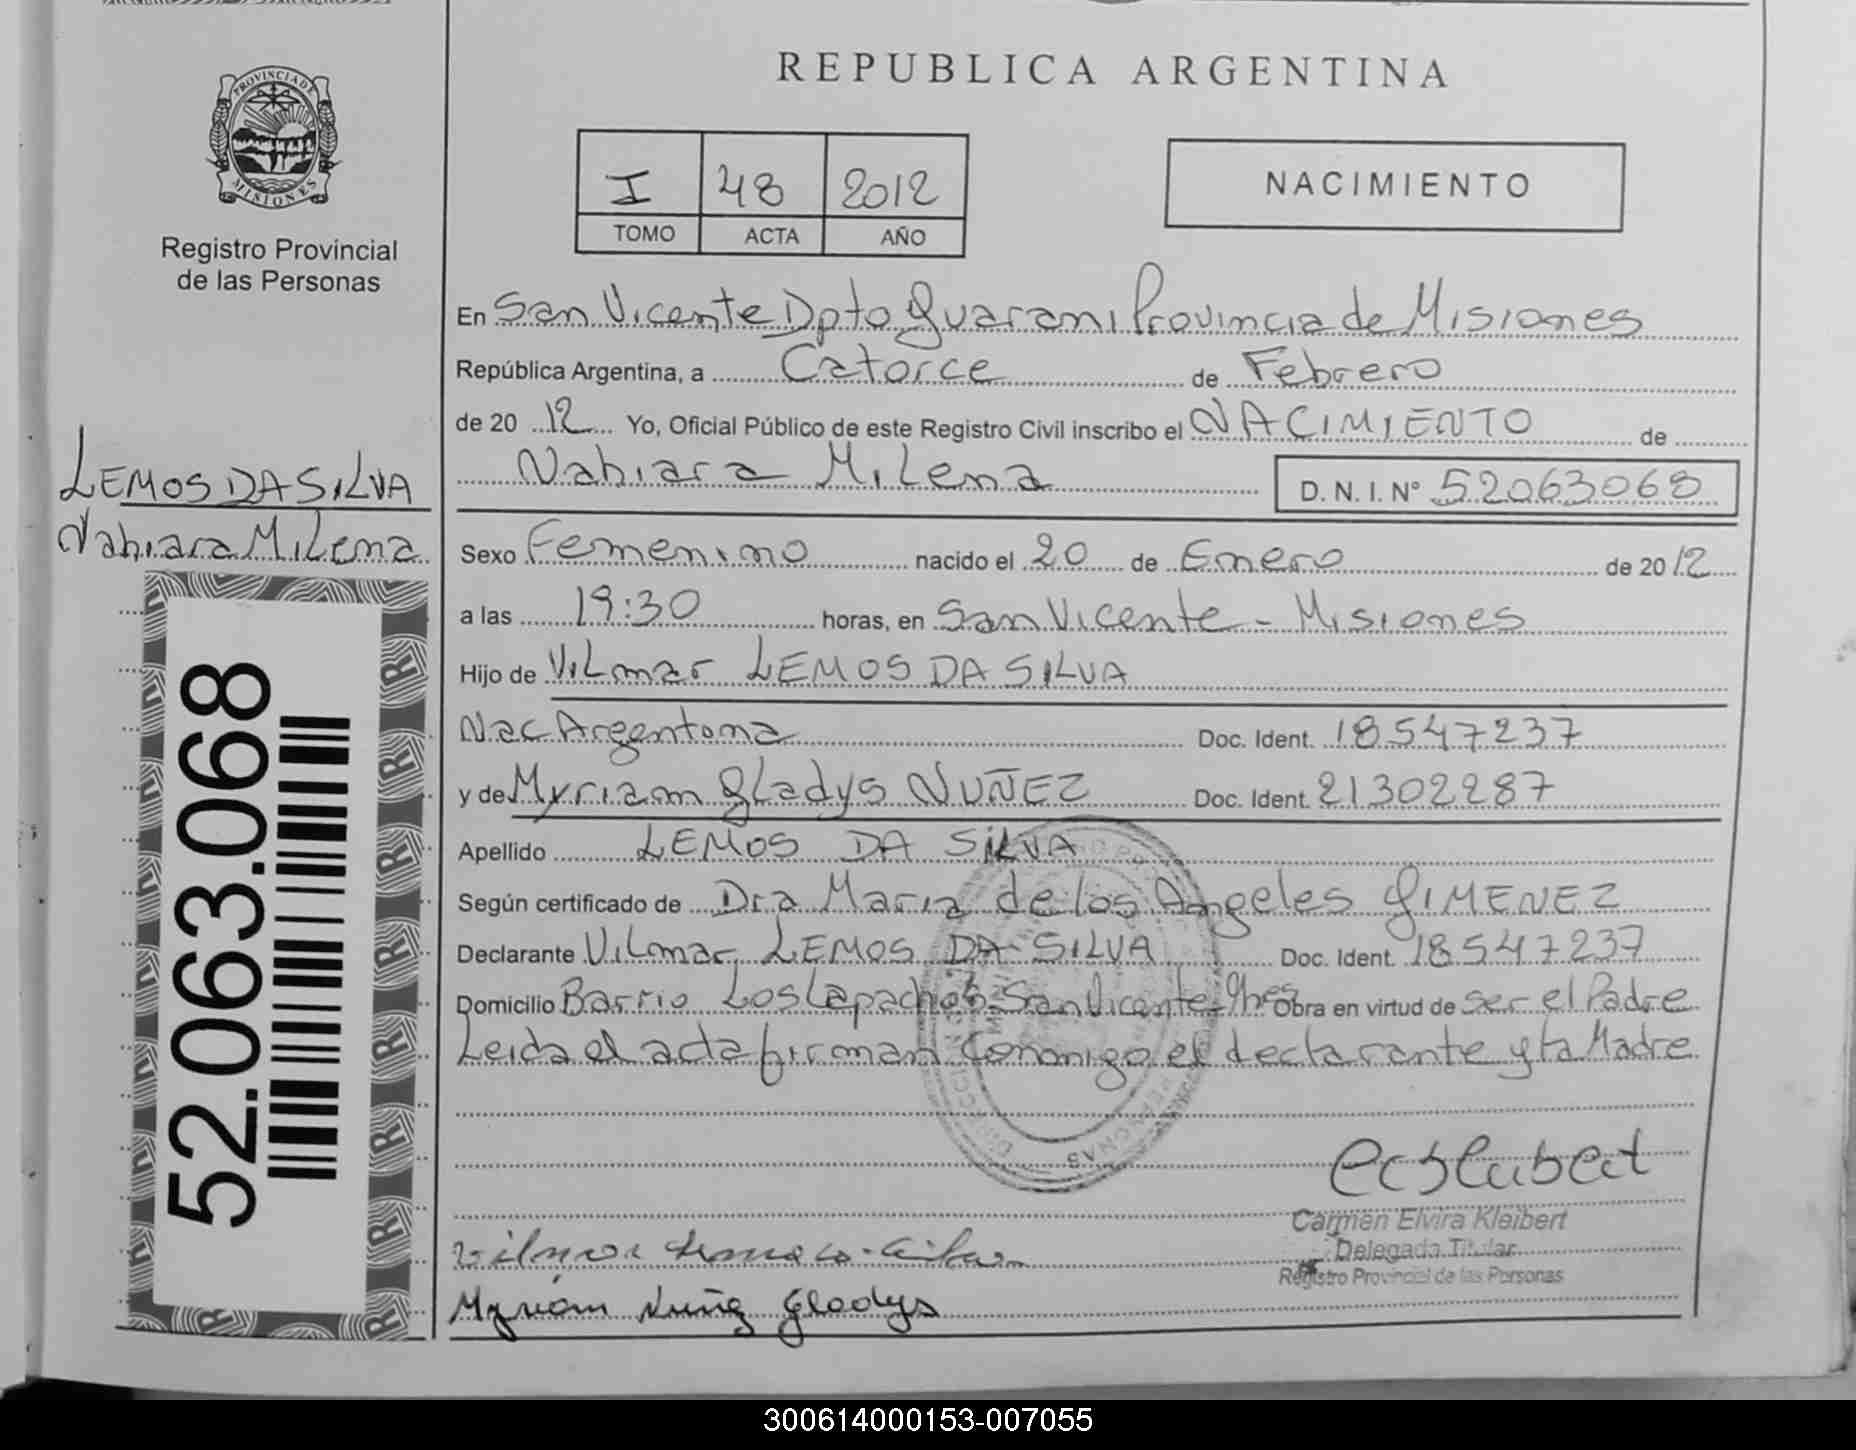 REPUBLICA ARGENTINA
PROVINCIA DE
MISIONES
Registro Provincial
de las Personas
I 48 2012
TOMO ACTA AÑO
NACIMIENTO
En San Vicente Dpto Guarani Provincia de Misiones
República Argentina, a Catorce de Febrero
de 20 12 Yo, Oficial Público de este Registro Civil inscribo el NACIMIENTO de
Nahiara Milena D. N. I. Nº 52063068
LEMOS DA SILVA
Nahiara Milena
52.063.068
Sexo Femenino nacido el 20 de Enero de 2012
a las 19:30 horas, en San Vicente - Misiones
Hijo de Vilmar LEMOS DA SILVA
Nac Argentona Doc. Ident. 18547237
y de Myriam Gladys NUÑEZ Doc. Ident. 21302287
Apellido LEMOS DA SILVA
Según certificado de Dra Maria de los Angeles GIMENEZ
Declarante Vilmar LEMOS DA SILVA Doc. Ident. 18547237
Domicilio Barrio Los Lapachos San Vicente Mnes Obra en virtud de ser el Padre
Leida el acta firman conmigo el declarante y la Madre
Carmen Elvira Kleibert
Delegada Titular
Registro Provincial de las Personas
Myriam Nuñez Gladys
300614000153-007055